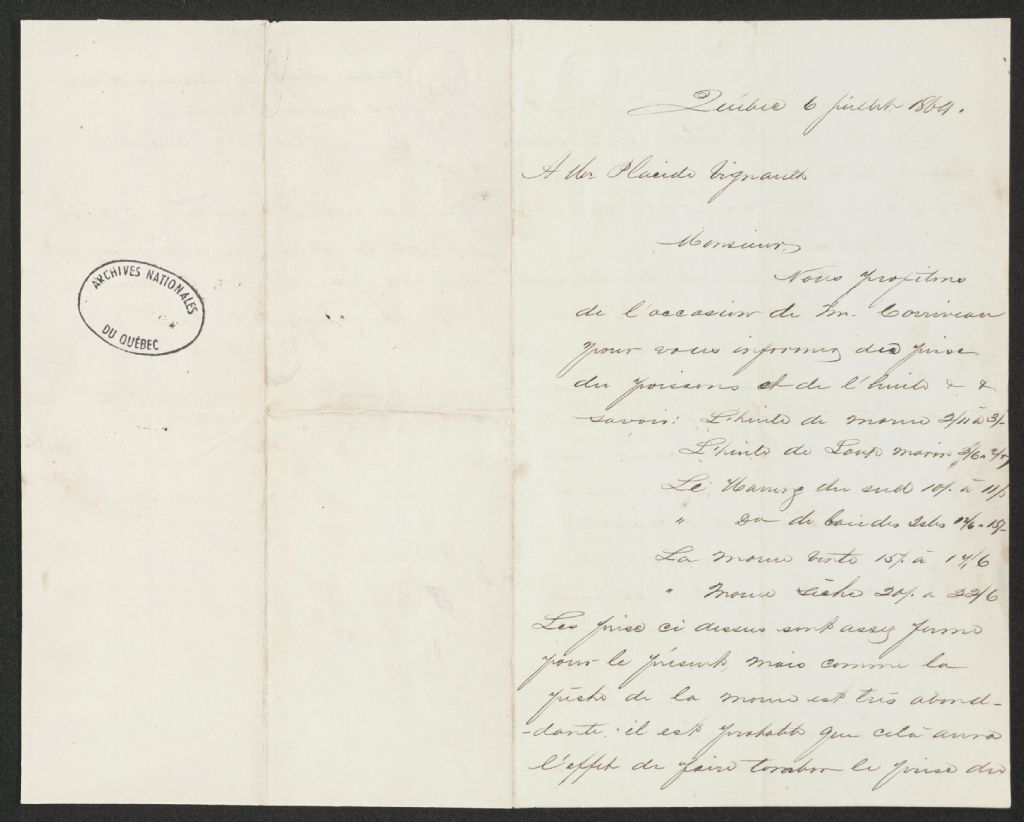 ARCHIVES NATIONALES
DU QUÉBEC
Québec 6 juillet 1864.
A Mr Placide Vignault
Monsieur,
Nous profitons
de l'occasion de Mr. Corriveau
pour vous informez des prise
du poissons et de l'huile & &
savoir: L'huile de morue 2/11 à 3/-
L'huile de Loup marin
Le Hareng du sud 10/. à 11/
" Do de 12/6 - 15/-
La morue verte 15/. à 17/6
" Morue sèche 20/. a 22/6
Les prise ci dessus sont assez ferme
pour le présent, mais comme la
pêche de la morue est très abond-
-dante, il est probable que celà aura
l'effet de faire tomber le prise du